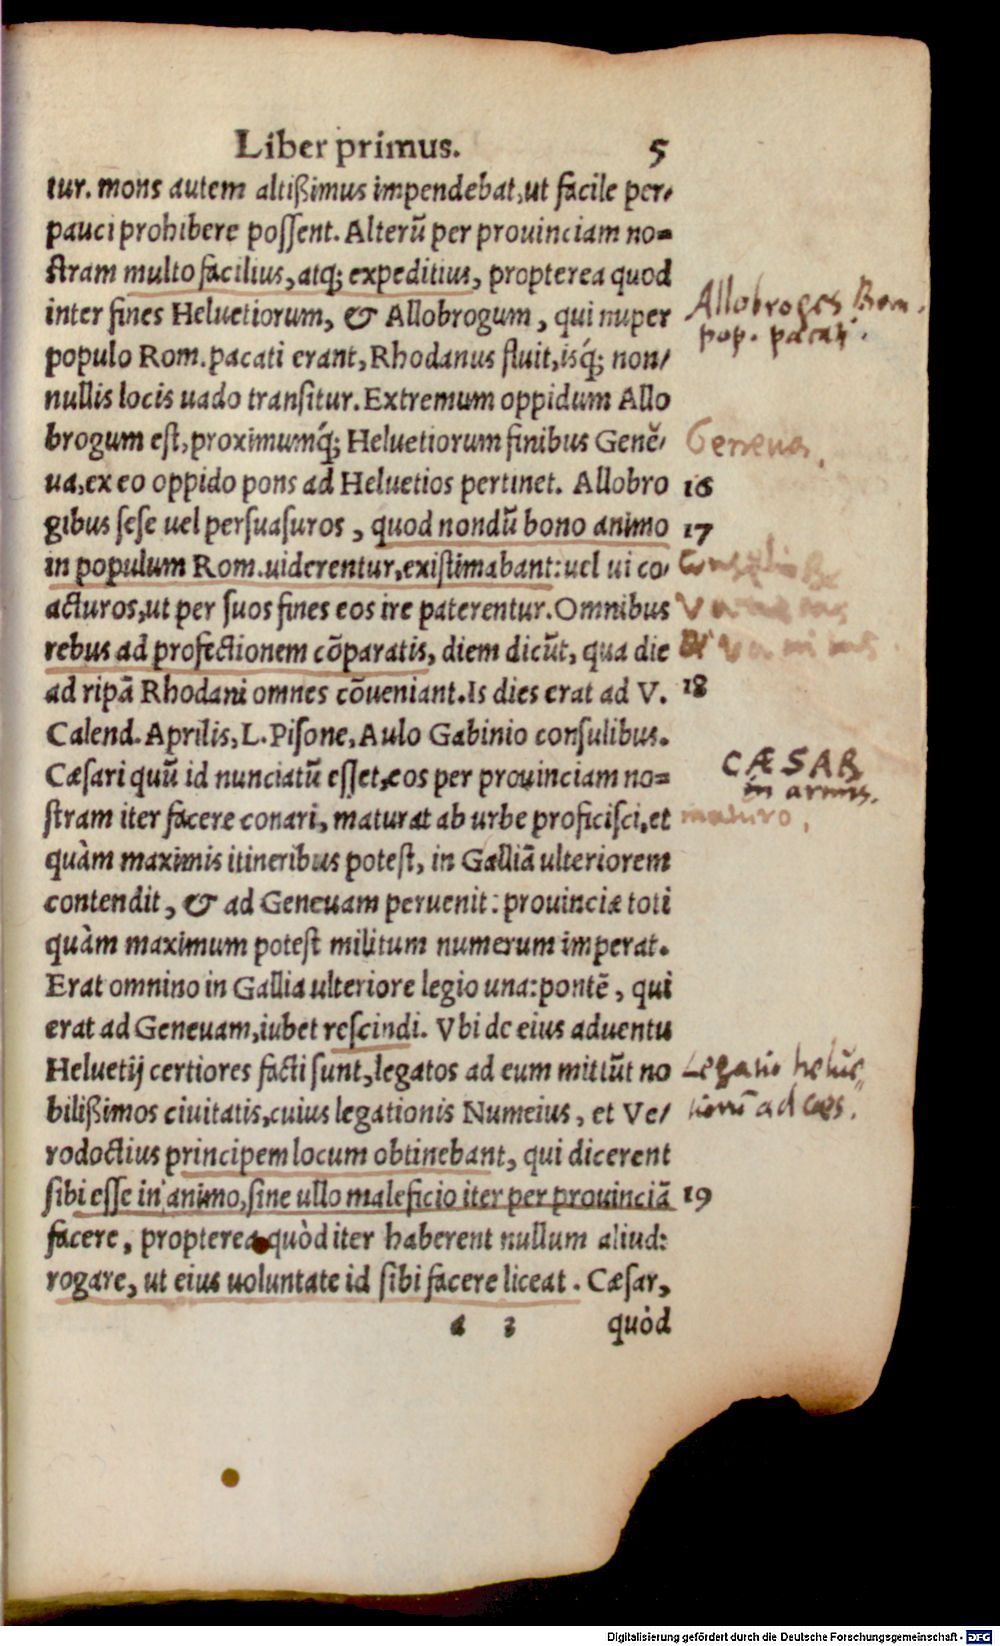 Liber primus. 5
tur. mons autem altißimus impendebat, ut facile per-
pauci prohibere possent. Alterũ per prouinciam no=
stram multo facilius, atq; expeditius, propterea quod
inter fines Heluetiorum, & Allobrogum, qui nuper
populo Rom. pacati erant, Rhodanus fluit, isq́; non/
nullis locis uado transitur. Extremum oppidum Allo
brogum est, proximumq́; Heluetiorum finibus Genĕ/
ua, ex eo oppido pons ad Heluetios pertinet. Allobro
gibus sese uel persuasuros, quod nondũ bono animo
in populum Rom. uiderentur, existimabant: uel ui co/
acturos, ut per suos fines eos ire paterentur. Omnibus
rebus ad profectionem cõparatis, diem dicũt, qua die
ad ripã Rhodani omnes cõueniant. Is dies erat ad V.
Calend. Aprilis, L. Pisone, Aulo Gabinio consulibus.
Cæsari quũ id nunciatũ esset, eos per prouinciam no=
stram iter facere conari, maturat ab urbe proficisci, et
quàm maximis itineribus potest, in Galliã ulteriorem
contendit, & ad Geneuam peruenit: prouinciæ toti
quàm maximum potest militum numerum imperat.
Erat omnino in Gallia ulteriore legio una: pontẽ, qui
erat ad Geneuam, iubet rescindi. Vbi de eius aduentu
Heluetij certiores facti sunt, legatos ad eum mittũt no
bilißimos ciuitatis, cuius legationis Numeius, et Ve/
rodoctius principem locum obtinebant, qui dicerent
sibi esse in animo, sine ullo maleficio iter per prouinciã
facere, propterea quòd iter haberent nullum aliud:
rogare, ut eius uoluntate id sibi facere liceat. Cæsar,
a 3 quòd
Allobroges Rom.
pop. pacati.
Geneua.
16
17
18
CÆSAR
in armis.
maturo.
Legatio heluē
tiorū ad cæs.
19
Digitalisierung gefördert durch die Deutsche Forschungsgemeinschaft - DFG